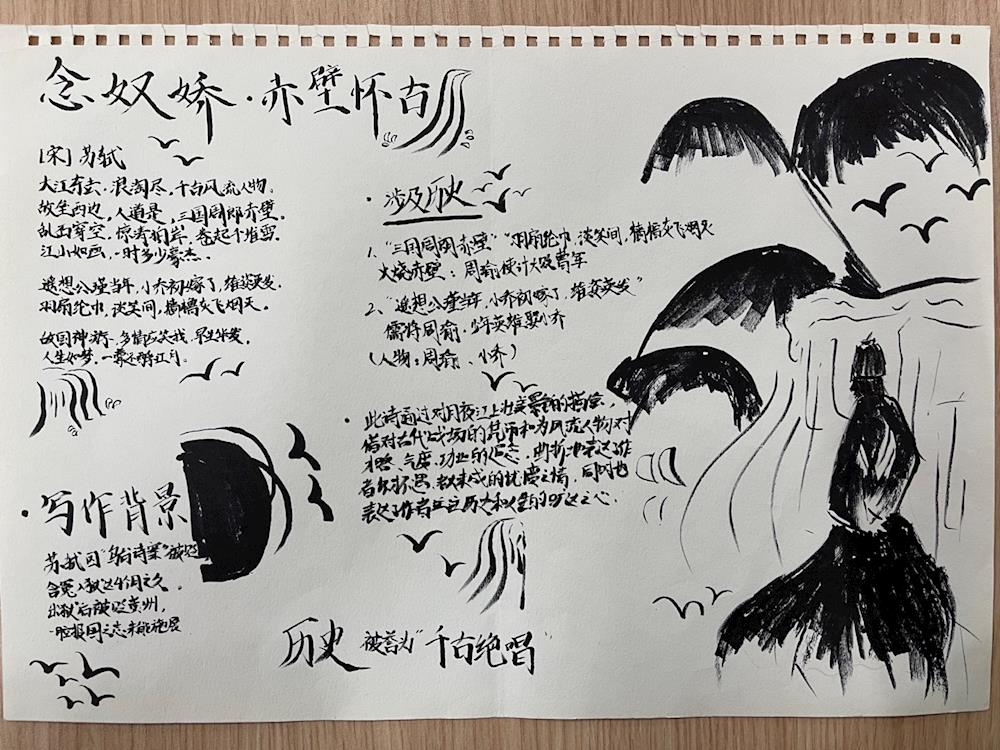 念奴娇·赤壁怀古
[宋]苏轼
大江东去,浪淘尽,千古风流人物。
故垒西边,人道是,三国周郎赤壁。
乱石穿空,惊涛拍岸,卷起千堆雪。
江山如画,一时多少豪杰。
遥想公瑾当年,小乔初嫁了,雄姿英发。
羽扇纶巾,谈笑间,樯橹灰飞烟灭。
故国神游,多情应笑我,早生华发,
人生如梦,一尊还酹江月。
·写作背景
苏轼因"乌台诗案"被贬
含冤入狱达4个月之久,
出狱后被贬黄州,
一腔报国之志未能施展
·涉及历史
1、"三国周郎赤壁" "羽扇纶巾,谈笑间,樯橹灰飞烟灭
火烧赤壁:周瑜使计大破曹军
2、"遥想公瑾当年,小乔初嫁了,雄姿英发"
儒将周瑜,少年英雄娶小乔
(人物:周瑜、小乔)
·此诗通过对月夜江上壮美景色的描绘,
借对古代战场的凭吊和对风流人物
才略、气度、功业的追念,曲折地表达了作
者怀才不遇、的忧愤之情,同时也
表达了作者历史和人生的旷达之心.
历史 被誉为"千古绝唱